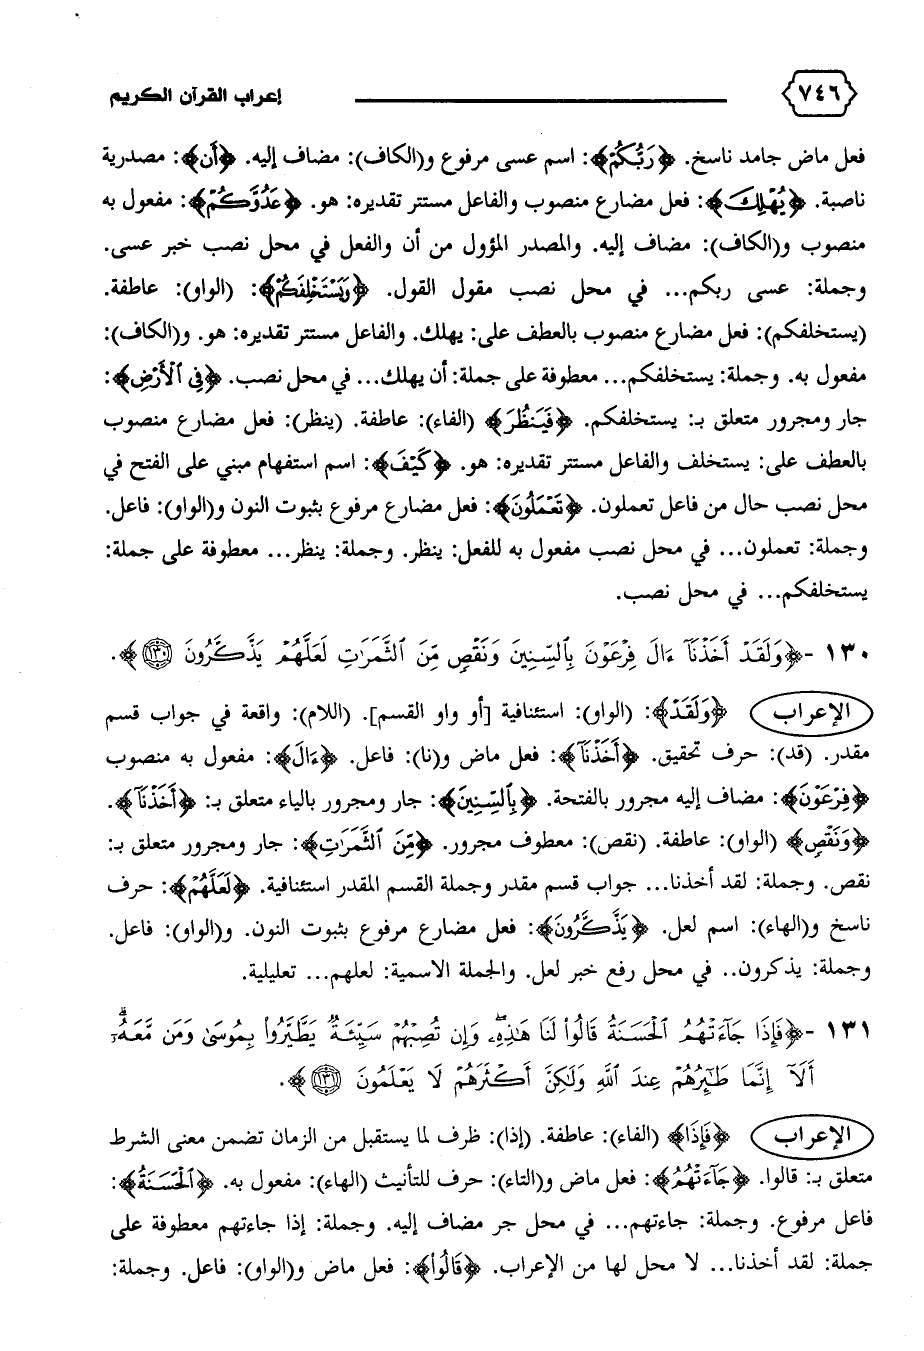 ٧٤٦ إعراب القرآن الكريم
فعل ماض جامد ناسخ. ﴿رَبُّكُمْ﴾: اسم عسى مرفوع و(الكاف): مضاف إليه. ﴿أَن﴾: مصدرية
ناصبة. ﴿يُهْلِكَ﴾: فعل مضارع منصوب والفاعل مستتر تقديره: هو. ﴿عَدُوَّكُمْ﴾: مفعول به
منصوب و(الكاف): مضاف إليه. والمصدر المؤول من أن والفعل في محل نصب خبر عسى.
وجملة: عسى ربكم... في محل نصب مقول القول. ﴿وَيَسْتَخْلِفَكُمْ﴾: (الواو): عاطفة.
(يستخلفكم): فعل مضارع منصوب بالعطف على: يهلك. والفاعل مستتر تقديره: هو. و(الكاف):
مفعول به. وجملة: يستخلفكم... معطوفة على جملة: أن يهلك... في محل نصب. ﴿فِي ٱلْأَرْضِ﴾:
جار ومجرور متعلق بـ: يستخلفكم. ﴿فَيَنظُرَ﴾ (الفاء): عاطفة. (ينظر): فعل مضارع منصوب
بالعطف على: يستخلف والفاعل مستتر تقديره: هو. ﴿كَيْفَ﴾: اسم استفهام مبني على الفتح في
محل نصب حال من فاعل تعملون. ﴿تَعْمَلُونَ﴾: فعل مضارع مرفوع بثبوت النون و(الواو): فاعل.
وجملة: تعملون... في محل نصب مفعول به للفعل: ينظر. وجملة: ينظر... معطوفة على جملة:
يستخلفكم... في محل نصب.
١٣٠ -﴿وَلَقَدْ أَخَذْنَآ ءَالَ فِرْعَوْنَ بِٱلسِّنِينَ وَنَقْصٍ مِّنَ ٱلثَّمَرَٰتِ لَعَلَّهُمْ يَذَّكَّرُونَ ١٣٠﴾.
الإعراب ﴿وَلَقَدْ﴾: (الواو): استئنافية [أو واو القسم]. (اللام): واقعة في جواب قسم
مقدر. (قد): حرف تحقيق. ﴿أَخَذْنَآ﴾: فعل ماض و(نا): فاعل. ﴿ءَالَ﴾: مفعول به منصوب
﴿فِرْعَوْنَ﴾: مضاف إليه مجرور بالفتحة. ﴿بِٱلسِّنِينَ﴾: جار ومجرور بالياء متعلق بـ: ﴿أَخَذْنَآ﴾.
﴿وَنَقْصٍ﴾ (الواو): عاطفة. (نقص): معطوف مجرور. ﴿مِّنَ ٱلثَّمَرَٰتِ﴾: جار ومجرور متعلق بـ:
نقص. وجملة: لقد أخذنا... جواب قسم مقدر وجملة القسم المقدر استئنافية. ﴿لَعَلَّهُمْ﴾: حرف
ناسخ و(الهاء): اسم لعل. ﴿يَذَّكَّرُونَ﴾: فعل مضارع مرفوع بثبوت النون. و(الواو): فاعل.
وجملة: يذكرون.. في محل رفع خبر لعل. والجملة الاسمية: لعلهم... تعليلية.
١٣١ -﴿فَإِذَا جَآءَتْهُمُ ٱلْحَسَنَةُ قَالُوا۟ لَنَا هَٰذِهِۦ ۖ وَإِن تُصِبْهُمْ سَيِّئَةٌ يَطَّيَّرُوا۟ بِمُوسَىٰ وَمَن مَّعَهُۥٓ ۗ
أَلَآ إِنَّمَا طَٰٓئِرُهُمْ عِندَ ٱللَّهِ وَلَٰكِنَّ أَكْثَرَهُمْ لَا يَعْلَمُونَ ١٣١﴾.
الإعراب ﴿فَإِذَا﴾ (الفاء): عاطفة. (إذا): ظرف لما يستقبل من الزمان تضمن معنى الشرط
متعلق بـ: قالوا. ﴿جَآءَتْهُمُ﴾: فعل ماض و(التاء): حرف للتأنيث (الهاء): مفعول به. ﴿ٱلْحَسَنَةُ﴾:
فاعل مرفوع. وجملة: جاءتهم... في محل جر مضاف إليه. وجملة: إذا جاءتهم معطوفة على
جملة: لقد أخذنا... لا محل لها من الإعراب. ﴿قَالُوا۟﴾: فعل ماض و(الواو): فاعل. وجملة: